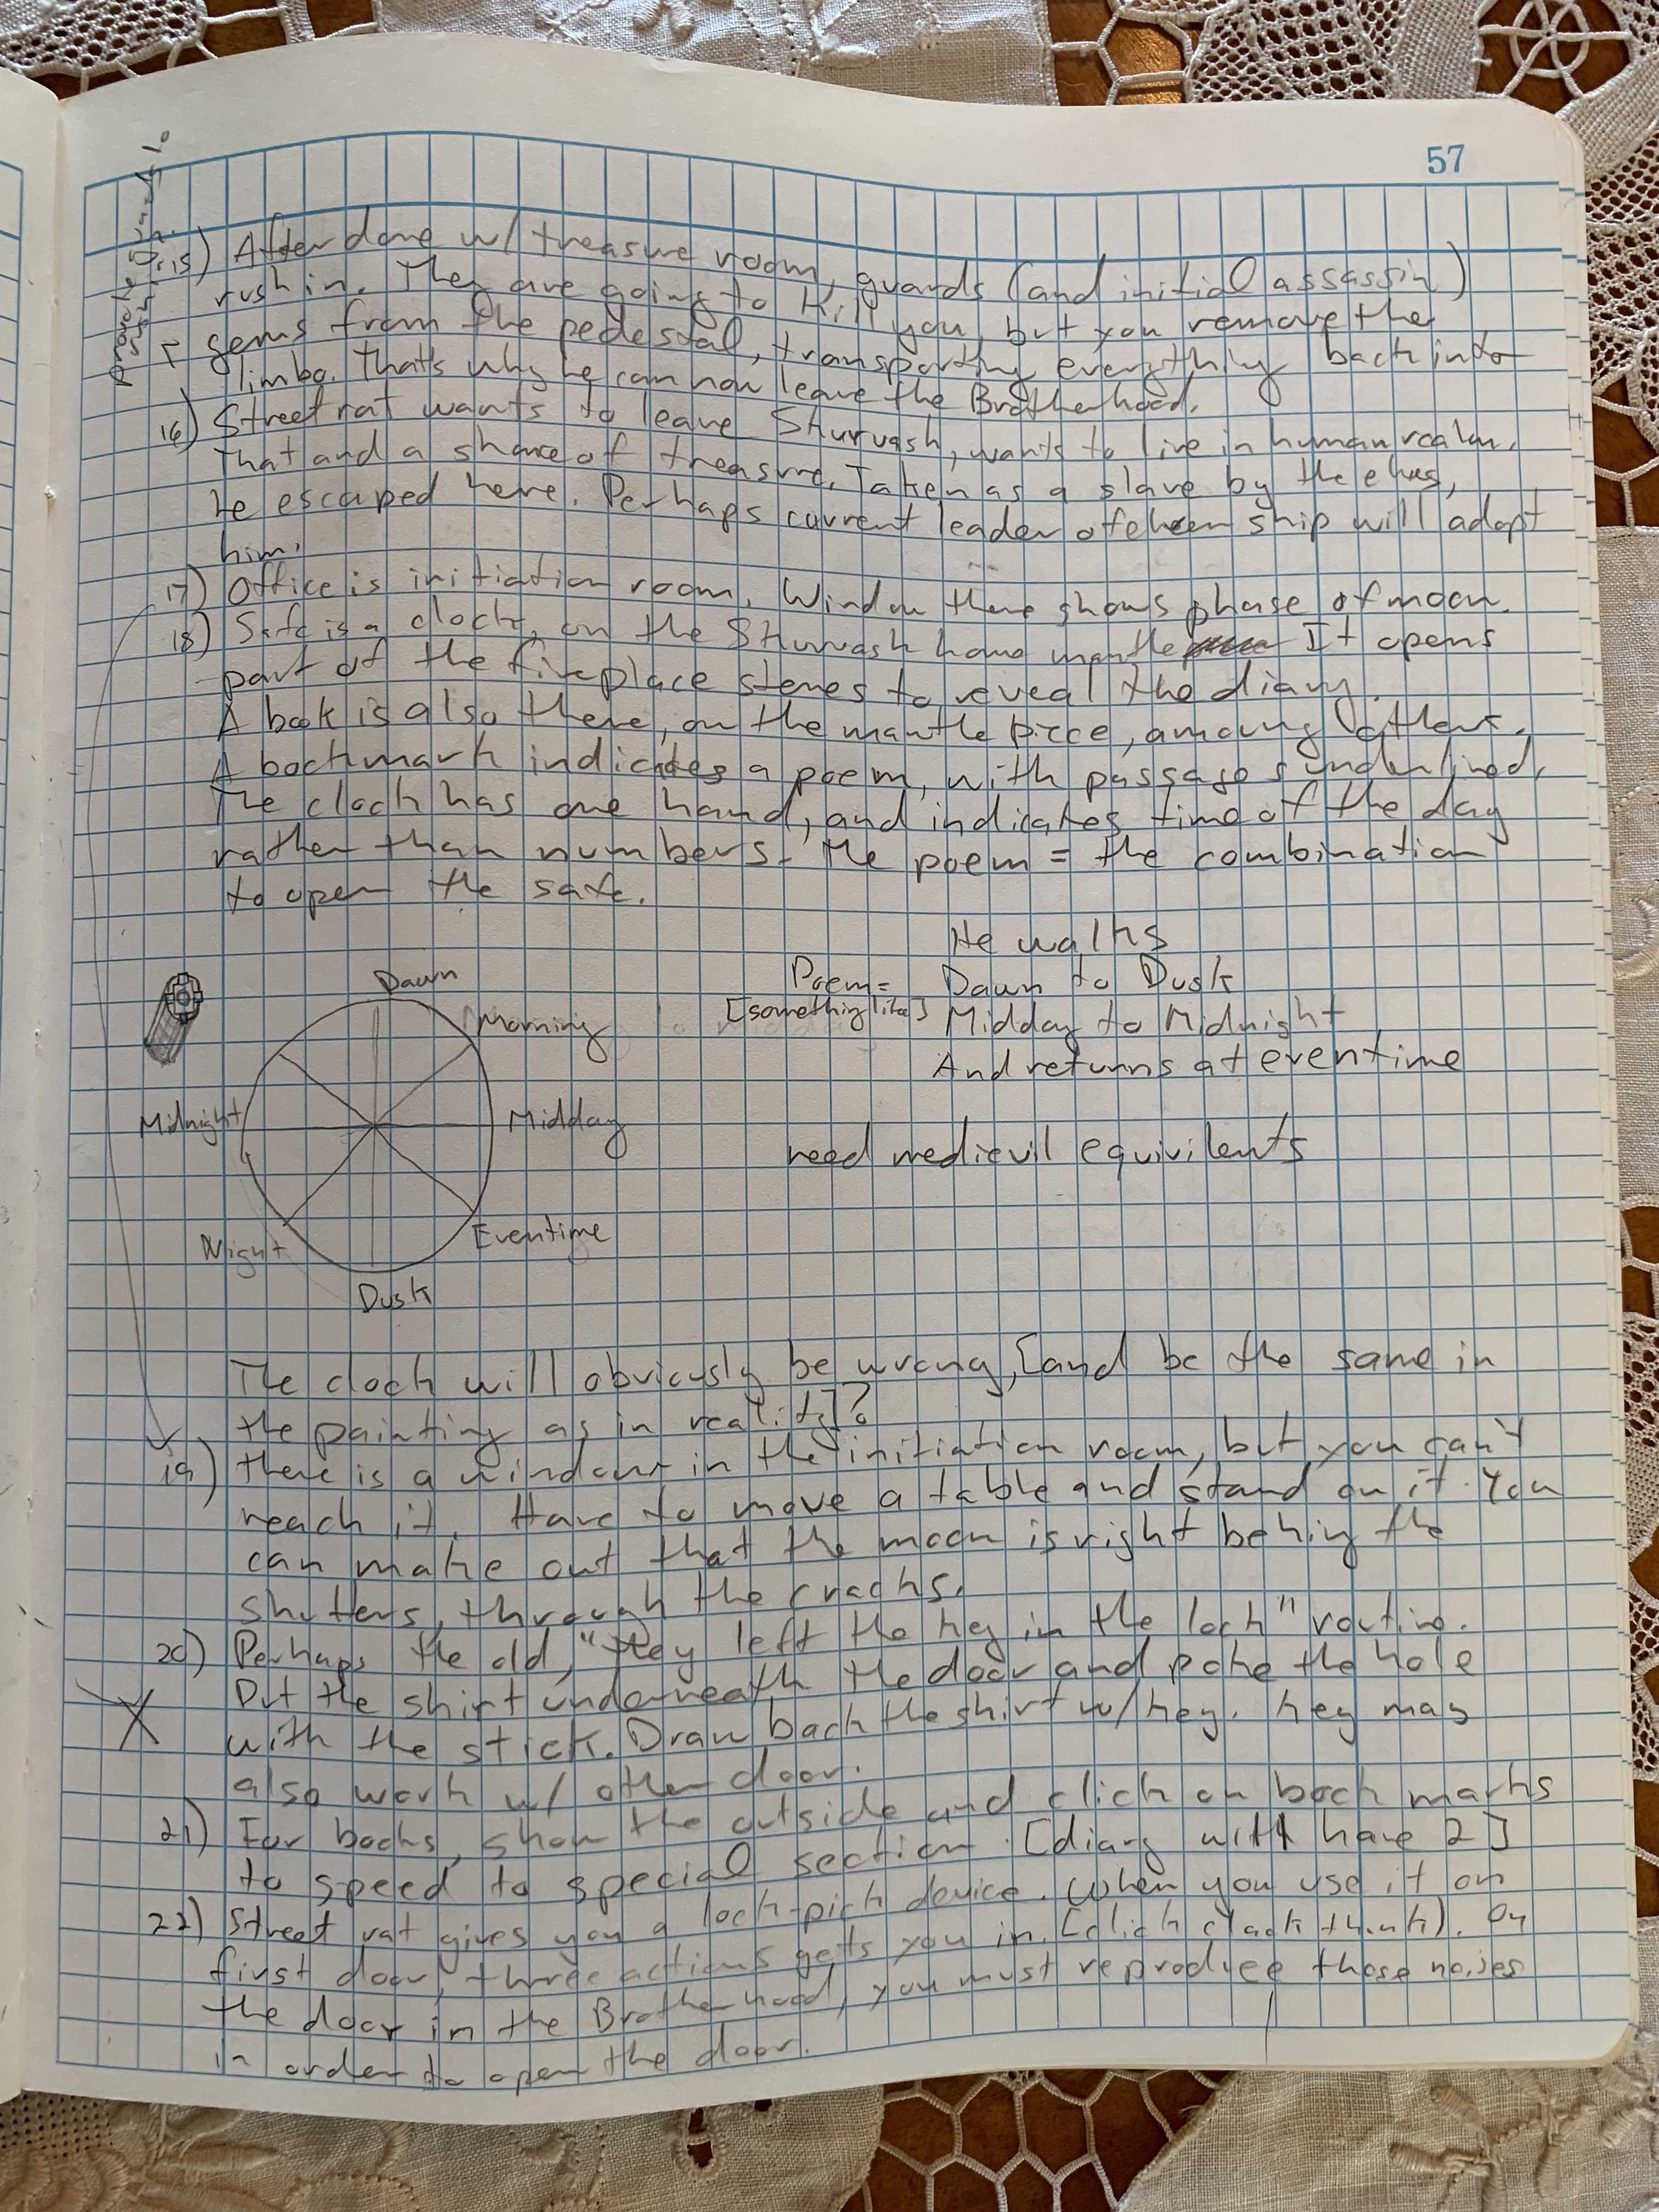 57
provoke guards to
rush in.
15) After done w/ treasure room, guards (and initial assassin)
rush in. They are going to kill you, but you remove the
gems from the pedestal, transporting everything back into
limbo. That's why he can now leave the Brotherhood.
16) Street rat wants to leave Shurvash, wants to live in human realm.
That and a share of treasure. Taken as a slave by the elves,
he escaped here. Perhaps current leader of elven ship will adopt
him.
17) Office is initiation room. Window there shows phase of moon.
18) Safe is a clock, on the Shurvash home mantle It opens
part of the fireplace stones to reveal the diary.
A book is also there, on the mantle piece, among others.
A bookmark indicates a poem, with passages underlined.
The clock has one hand, and indicates time of the day
rather than numbers. The poem = the combination
to open the safe.
He walks
Poem= Dawn to Dusk
[something like] Midday to Midnight
And returns at eventime
need medievil equivilents
Dawn
Morning
Midnight
Midday
Night
Eventime
Dusk
The clock will obviously be wrong, [and be the same in
the painting as in reality]?
19) There is a window in the initiation room, but you can't
reach it. Have to move a table and stand on it. You
can make out that the moon is right behing the
shutters, through the cracks.
20) Perhaps the old, "they left the key in the lock" routine.
Put the shirt underneath the door and poke the hole
with the stick. Draw back the shirt w/ key. Key may
also work w/ other door.
21) For books, show the outside and click on book marks
to speed to special section. [diary will have 2]
22) Street rat gives you a lock-pick device. When you use it on
first door, three actions gets you in. [click clack thunk]. On
the door in the Brotherhood, you must reproduce those noises
in order to open the door.